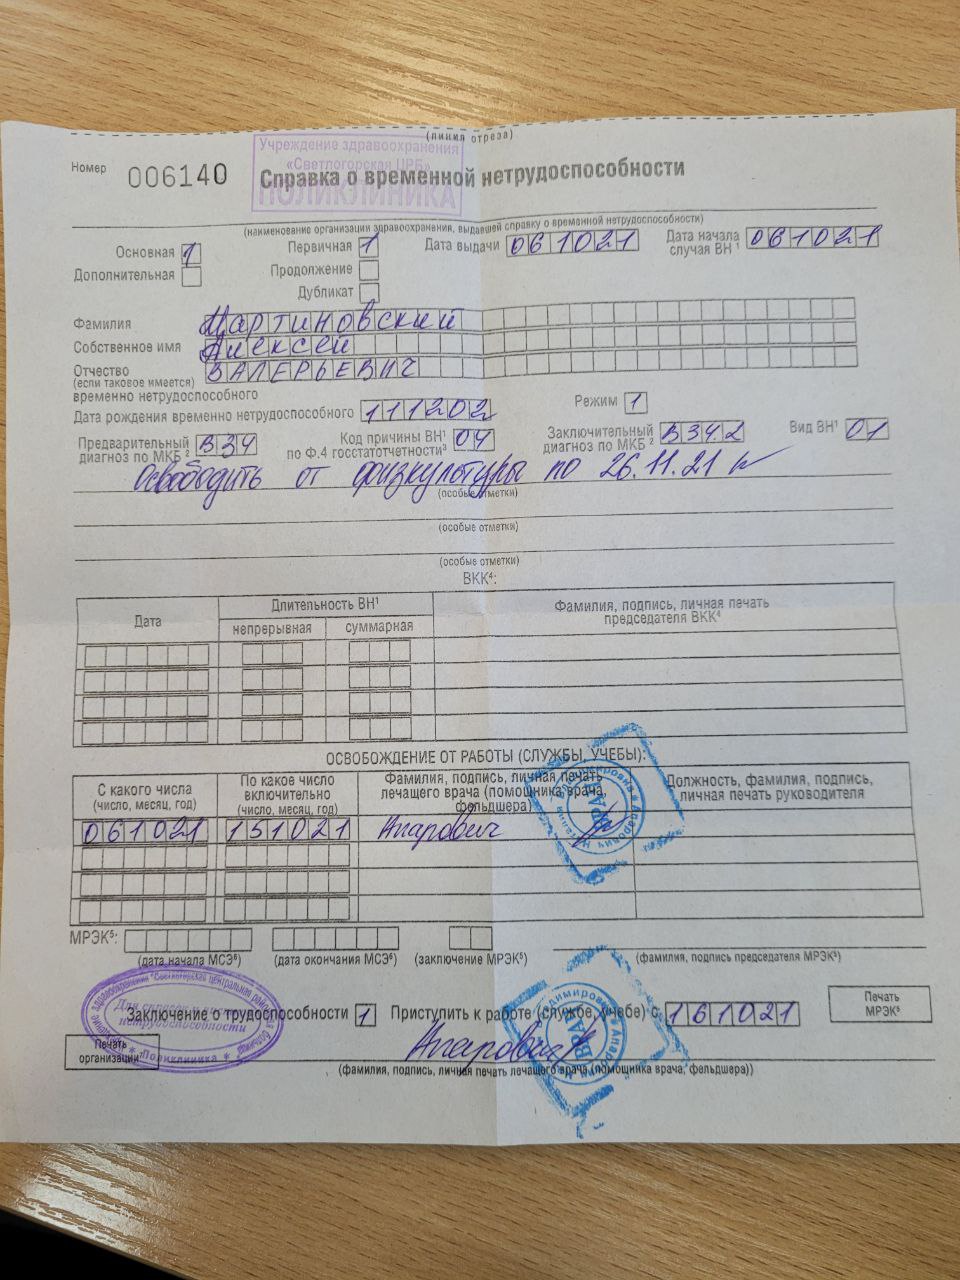 (линия отреза)
Учреждение здравоохранения
«Светлогорская ЦРБ»
ПОЛИКЛИНИКА
Номер 006140 Справка о временной нетрудоспособности
(наименование организации здравоохранения, выдавшей справку о временной нетрудоспособности)
Основная 1 Первичная 1 Дата выдачи 061021 Дата начала случая ВН¹ 061021
Дополнительная Продолжение
Дубликат
Фамилия Мартиновский
Собственное имя Алексей
Отчество ВАЛЕРЬЕВИЧ
(если таковое имеется)
временно нетрудоспособного
Дата рождения временно нетрудоспособного 111202 Режим 1
Предварительный диагноз по МКБ² B34 Код причины ВН¹ по Ф.4 госстатотчетности³ 04 Заключительный диагноз по МКБ² B34.2 Вид ВН¹ 01
Освободить от физкультуры по 26.11.21
(особые отметки)
(особые отметки)
(особые отметки)
ВКК⁴:
Дата Длительность ВН¹ Фамилия, подпись, личная печать председателя ВКК⁴
непрерывная суммарная
ОСВОБОЖДЕНИЕ ОТ РАБОТЫ (СЛУЖБЫ, УЧЕБЫ):
С какого числа (число, месяц, год) По какое число включительно (число, месяц, год) Фамилия, подпись, личная печать лечащего врача (помощника врача, фельдшера) Должность, фамилия, подпись, личная печать руководителя
061021 151021 Апарович
ВРАЧ
МРЭК⁵:
(дата начала МСЭ⁶) (дата окончания МСЭ⁶) (заключение МРЭК⁵) (фамилия, подпись председателя МРЭК⁵)
Для справок и листков нетрудоспособности
* Поликлиника *
Заключение о трудоспособности 1 Приступить к работе (службе, учебе) с 161021 Печать МРЭК⁵
Печать организации Апарович
ВРАЧ
(фамилия, подпись, личная печать лечащего врача (помощника врача, фельдшера))